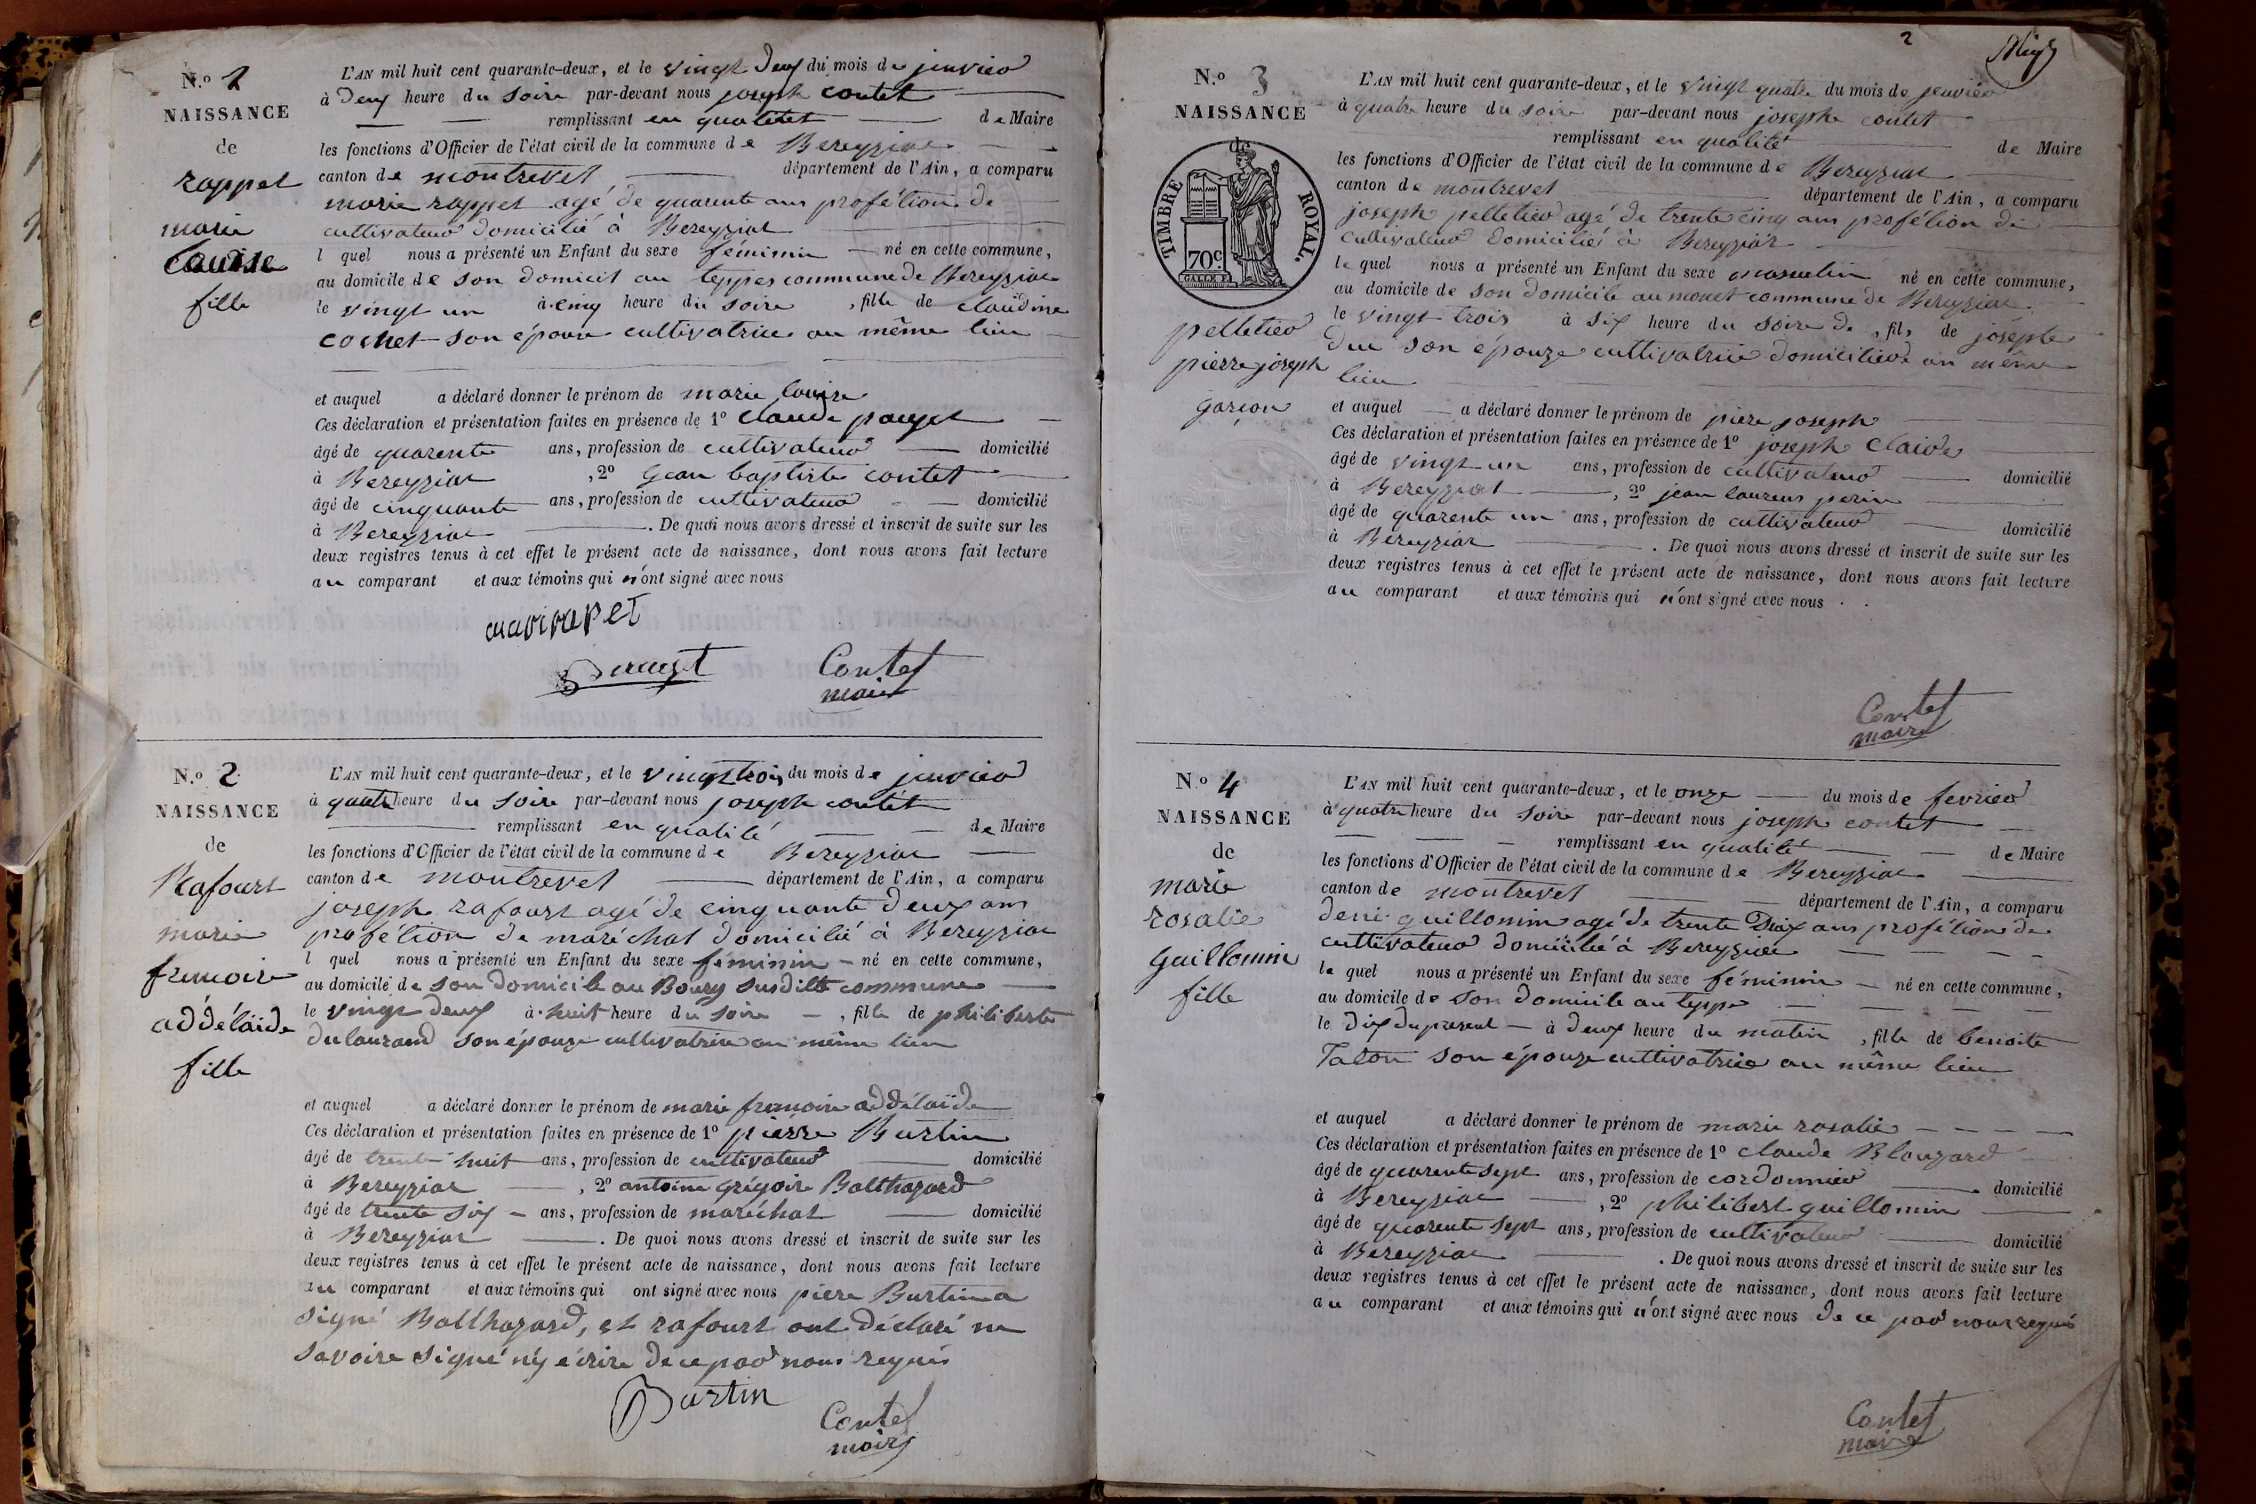 N.º 1
NAISSANCE
de
rappet
marie
Louise
fille
L'AN mil huit cent quarante-deux, et le vingt deux du mois de janvier
à deux heure du soire par-devant nous joseph contet
remplissant en qualitet de Maire
les fonctions d'Officier de l'état civil de la commune de Bereyziat
canton de montrevet département de l'Ain, a comparu
marie rappet agé de quarente ans profétion de
cultivateur domicilié à Bereyziat
l quel nous a présenté un Enfant du sexe féminin né en cette commune,
au domicile de son domicil au teppes commune de Bereyziat
le vingt un à cinq heure du soire, fille de claudine
cochet son épouse cultivatrice au même lieu
et auquel a déclaré donner le prénom de marie louise
Ces déclaration et présentation faites en présence de 1º claude pauget
âgé de quarente ans, profession de cultivateur domicilié
à Bereyziat, 2º Gean baptiste contet
âgé de cinquante ans, profession de cultivateur domicilié
à Bereyziat. De quoi nous avons dressé et inscrit de suite sur les
deux registres tenus à cet effet le présent acte de naissance, dont nous avons fait lecture
au comparant et aux témoins qui n'ont signé avec nous
Contet
maire
N.º 2
NAISSANCE
de
Rafourt
marie
francoise
addélaïde
fille
L'AN mil huit cent quarante-deux, et le vingt trois du mois de janvier
à quatre heure du soire par-devant nous joseph contet
remplissant en qualité de Maire
les fonctions d'Officier de l'état civil de la commune de Bereyziat
canton de montrevet département de l'Ain, a comparu
joseph rafourt agé de cinquante deux ans
profétion de maréchat domicilié à Bereyziat
l quel nous a présenté un Enfant du sexe féminin né en cette commune,
au domicile de son domicile au Bourg susditte commune
le vingt deux à huit heure du soire, fille de philiberte
dulaurand son épouze cultivatrice au même lieu
et auquel a déclaré donner le prénom de marie francoise addélaïde
Ces déclaration et présentation faites en présence de 1º pierre Burtin
âgé de trente huit ans, profession de cultivateur domicilié
à Bereyziat, 2º antoine grégoire Balthazard
âgé de trente six ans, profession de maréchat domicilié
à Bereyziat. De quoi nous avons dressé et inscrit de suite sur les
deux registres tenus à cet effet le présent acte de naissance, dont nous avons fait lecture
au comparant et aux témoins qui ont signé avec nous piere Burtin a
signé Balthazard, et rafourt ont déclaré ne
savoire signé n'y écrire de ce par nous requis
Burtin
Contet
maire
2
N.º 3
NAISSANCE
de
TIMBRE ROYAL.
70c
pelletier
pierre joseph
garçon
L'AN mil huit cent quarante-deux, et le vingt quatre du mois de janvier
à quatre heure du soire par-devant nous josephe contet
remplissant en qualité de Maire
les fonctions d'Officier de l'état civil de la commune de Bereyziat
canton de montrevet département de l'Ain, a comparu
joseph pelletier agé de trente cinq ans profétion de
cultivateur domicilié à Bereyziat
le quel nous a présenté un Enfant du sexe masculin né en cette commune,
au domicile de son domicile au monet commune de Bereyziat
le vingt trois à six heure du soire de, fils de josephe
Duc son épouze cultivatrice domiciliée au même
lieu
et auquel a déclaré donner le prénom de piere joseph
Ces déclaration et présentation faites en présence de 1º joseph Claire
âgé de vingt un ans, profession de cultivateur domicilié
à Bereyziat, 2º jean laurens perin
âgé de quarente un ans, profession de cultivateur domicilié
à Bereyziat. De quoi nous avons dressé et inscrit de suite sur les
deux registres tenus à cet effet le présent acte de naissance, dont nous avons fait lecture
au comparant et aux témoins qui n'ont signé avec nous
Contet
maire
Nº 4
NAISSANCE
de
marie
rosalie
Guillomin
fille
L'AN mil huit cent quarante-deux, et le onze du mois de fevrier
à quatre heure du soire par-devant nous joseph contet
remplissant en qualité de Maire
les fonctions d'Officier de l'état civil de la commune de Bereyziat
canton de montrevet département de l'Ain, a comparu
deni guillomin agé de trente Dix ans profétion de
cultivateur domicilié à Bereyziat
le quel nous a présenté un Enfant du sexe féminin né en cette commune,
au domicile de son domicile au teppe
le dix du present à deux heure du matin, fille de benoite
Talon son épouze cultivatrice au même lieu
et auquel a déclaré donner le prénom de marie rosalie
Ces déclaration et présentation faites en présence de 1º claude Blanzard
âgé de quarente sept ans, profession de cordonnier domicilié
à Bereyziat, 2º philibert guillomin
âgé de quarente sept ans, profession de cultivateur domicilié
à Bereyziat. De quoi nous avons dressé et inscrit de suite sur les
deux registres tenus à cet effet le présent acte de naissance, dont nous avons fait lecture
au comparant et aux témoins qui n'ont signé avec nous de ce par nous requis
Contet
maire